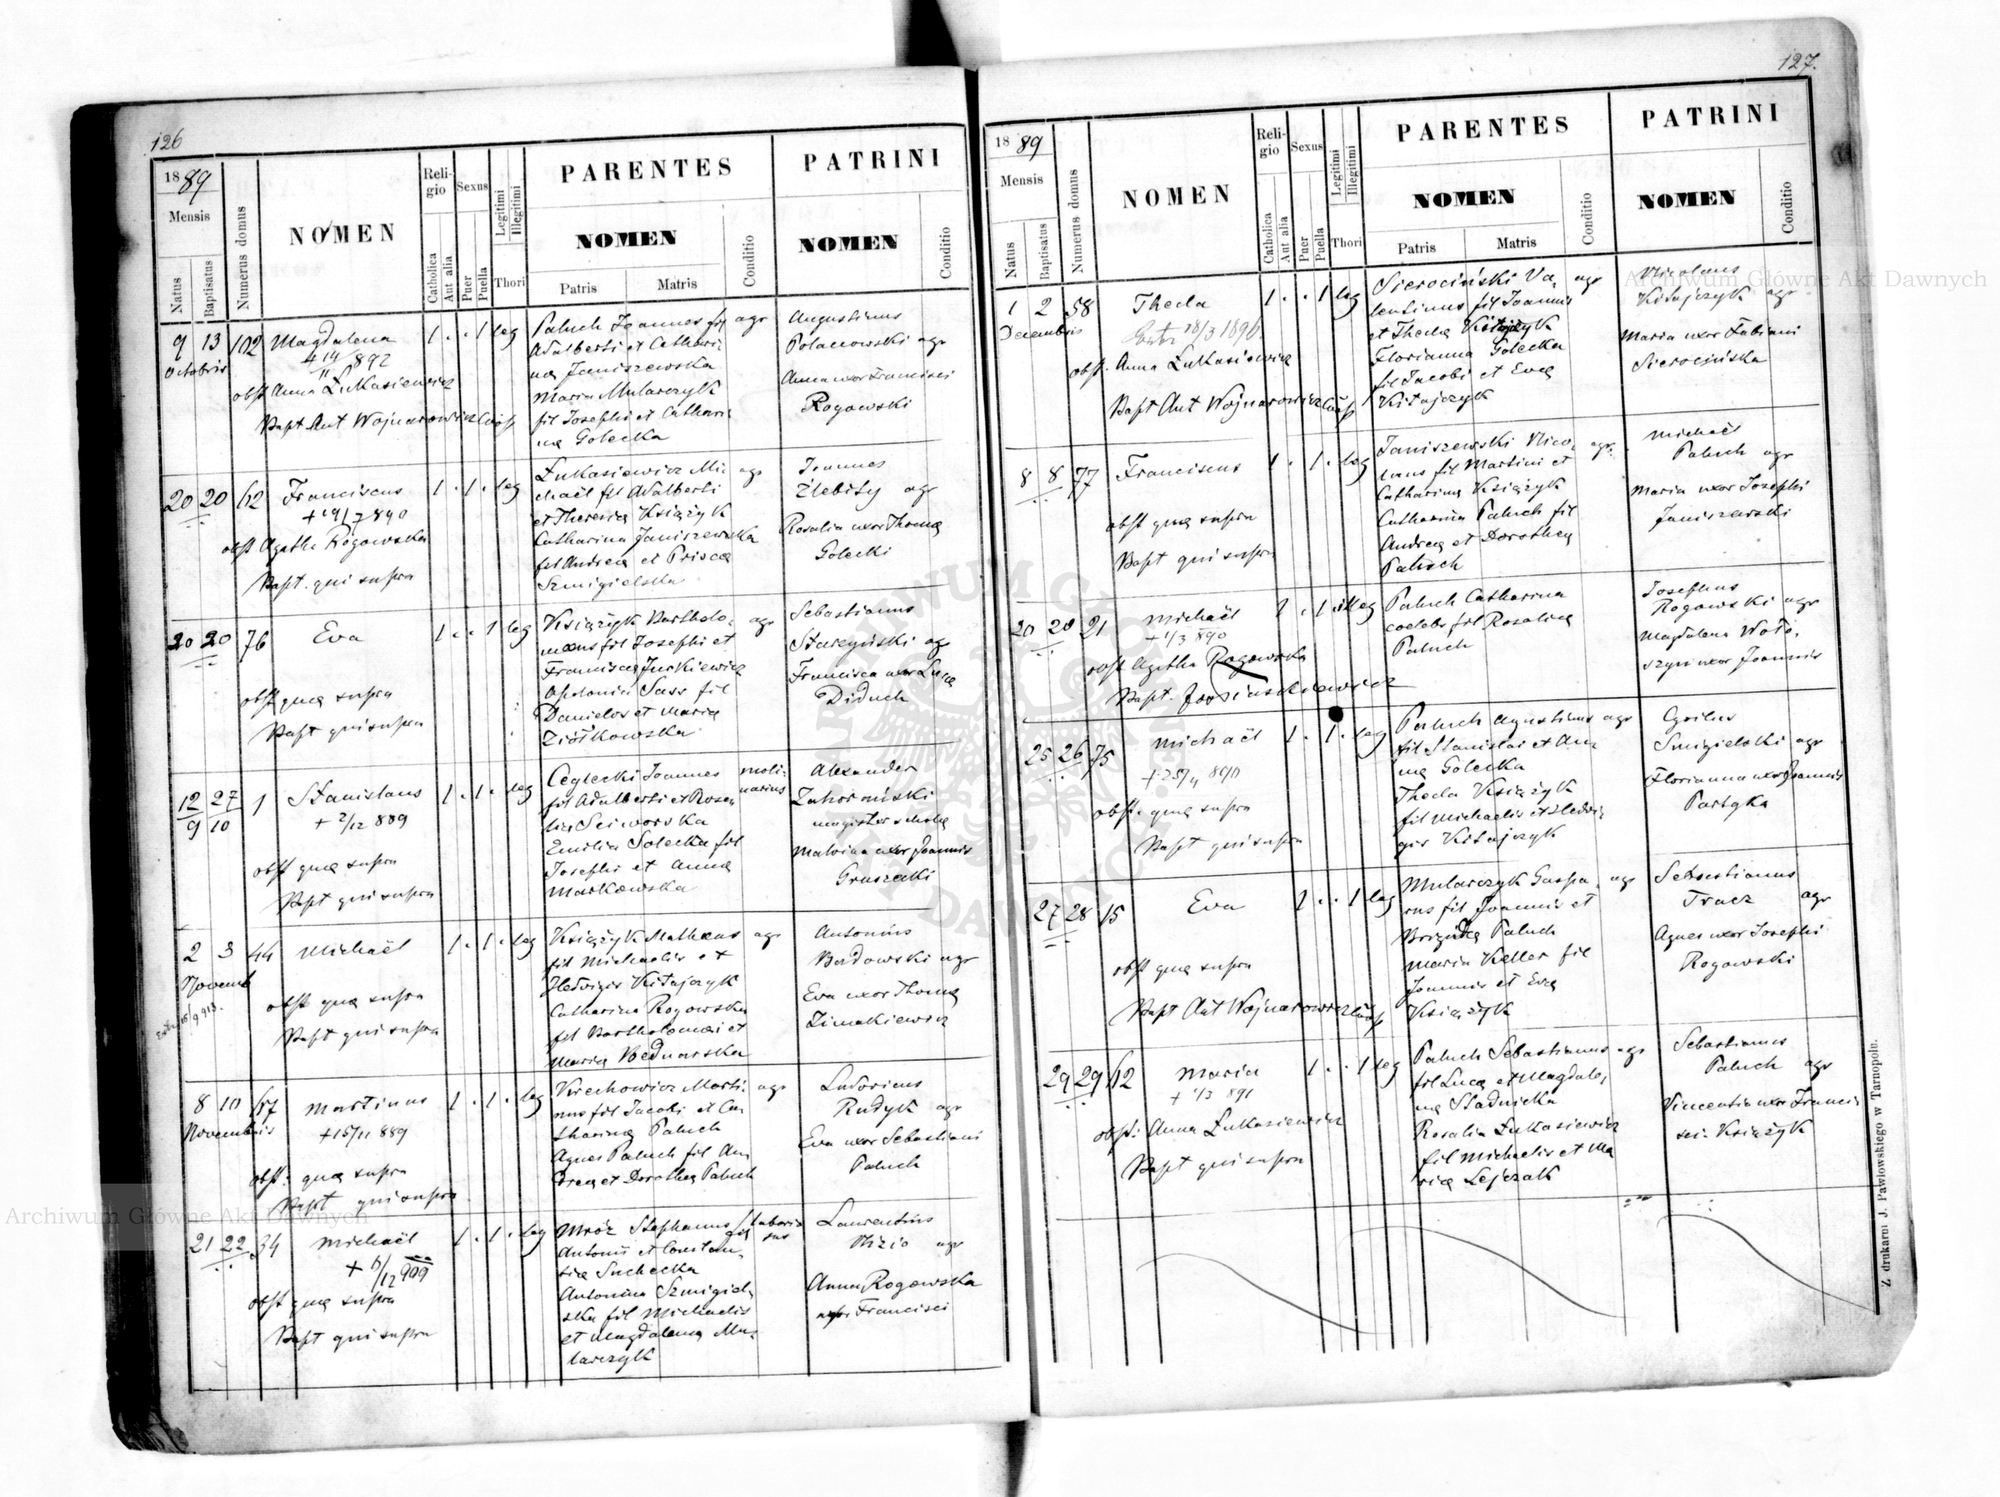 126
1889
Mensis
Natus
Baptisatus
Numerus domus
NOMEN
Religio
Catholica
Aut alia
Sexus
Puer
Puella
Legitimi
Illegitimi
Thori
PARENTES
NOMEN
Patris
Matris
Conditio
PATRINI
NOMEN
Conditio
9 13 102 Magdalena 1 . . 1 leg
Octobris
892
obst Anna Łukasiewicz
Bapt Ant Wojnarowicz Coop
Paluch Joannes fil agr
Adalberti et Cathari
nę Janiszewska
Maria Mularczyk
fil Josephi et Cathari
nę Golecka
Augustinus
Polanowski agr
Anna uxor Francisci
Rogowski
20 20 112 Franciscus 1 . 1 . leg
+ 19/7 890
obst Agatha Rogowska
Bapt. qui supra
Łukasiewicz Mi agr
chaël fil Adalberti
et Theresię Książyk
Catharina Janiszewska
fil Andreę et Priscę
Szmigielska
Joannes
Żlebity agr
Rosalia uxor Thomę
Golecki
20 20 76 Eva 1 . . 1 leg
obst quę supra
Bapt qui supra
Książyk Bartholo agr
męus fil Josephi et
Franciscę Jurkiewicz
Apolonia Sass fil
Danielis et Marię
Ziółkowska
Sebastianus
Starzyński agr
Francisca uxor Lucę
Diduch
12/9 27/10 1 Stanislaus 1 . 1 . leg
+ 2/12 889
obst quę supra
Bapt qui supra
Ceglecki Joannes moli
narius
fil Adalberti et Rosa
lię Sciworska
Emilia Solecka fil
Josephi et Annę
Markowska
Alexander
magister scholę
Malvina uxor Joannis
Gruszecki
2 3 44 Michaël 1 . 1 . leg
Novemb
obst quę supra
Bapt qui supra
Książyk Mathęus agr
fil Michaelis et
Hedvigis Kitajczyk
Catharina Rogowska
fil Bartholomęi et
Marię Bednarska
Antonius
Badowski agr
Eva uxor Thomę
Zimakiewicz
8 10 117 Martinus 1 . 1 . leg
Novembris
+ 15/11 889
obst: quę supra
Bapt qui supra
Krechowicz Marti agr
nus fil Jacobi et Ca
tharinę Paluch
Agnes Paluch fil An
dreę et Dorothea Paluch
Ludovicus
Rudyk agr
Eva uxor Sebastiani
Paluch
21 22 34 Michaël 1 . 1 . leg
+ 6/12 909
obst quę supra
Bapt qui supra
Mróz Stephanus fil laborio
sus
Antonii et Constan
tię Suchecka
Antonina Szmigiel
ska fil Michaelis
et Magdalenę Mu
larczyk
Laurentius
Nizio agr
Anna Rogowska
uxor Francisci
127.
1889
Mensis
Natus
Baptisatus
Numerus domus
NOMEN
Religio
Catholica
Aut alia
Sexus
Puer
Puella
Legitimi
Illegitimi
Thori
PARENTES
NOMEN
Patris
Matris
Conditio
PATRINI
NOMEN
Conditio
1 2 58 Thecla 1 . . 1 leg
Decembris
18/3 1890
obst. Anna Łukasiewicz
Bapt Ant Wojnarowicz Coop
Sierociński Va agr
lentinus fil Joannis
et Theclę Kitajczyk
Florianna Golecka
fil Jacobi et Evę
Kitajczyk
Nicolaus
Kitajczyk agr
Maria uxor Fabiani
Sierocińska
8 8 77 Franciscus 1 . 1 . leg
obst quę supra
Bapt qui supra
Janiszewski Nico agr
laus fil Martini et
Catharinę Książyk
Catharina Paluch fil
Andreę et Dorotheę
Paluch
Michaël
Paluch agr
Maria uxor Josephi
Janiszewski
20 20 21 Michaël 1 . 1 illeg
+ 1/3 890
obst Agatha Rogowska
Paluch Catharina
coelebs fil Rosalię
Paluch
Josephus
Rogowski agr
Magdalena Woło
szyn uxor Joannis
25 26 75 Michaël 1 . 1 . leg
obst. quę supra
Bapt qui supra
Paluch Agustinus agr
fil Stanislai et An
nę Golecka
Thecla Książyk
fil Michaelis et Hedvi
gis Kitajczyk
Cyrilus
Smigielski agr
Florianna uxor Joannis
Partyka
27 28 15 Eva 1 . . 1 leg
obst quę supra
Bapt Ant Wojnarowicz Coop
Mularczyk Gaspa agr
rus fil Joannis et
Brigidę Paluch
Maria Keller fil
Joannis et Evę
Książyk
Sebastianus
Tracz agr
Agnes uxor Josephi
Rogowski
29 29 112 Maria 1 . . 1 leg
+ 1/3 891
obst: Anna Łukasiewicz
Bapt qui supra
Paluch Sebastianus agr
fil Lucę et Magdale
nę Stadnicka
Rosalia Łukasiewicz
fil Michaelis et Ma
rię Lejczak
Sebastianus
Paluch agr
Vincentia uxor Francis
sci Książyk
Z drukarni J. Pawłowskiego w Tarnopolu.
Archiwum Główne Akt Dawnych
Archiwum Główne Akt Dawnych
ARCHIWUM GŁÓWNE AKT DAWNYCH